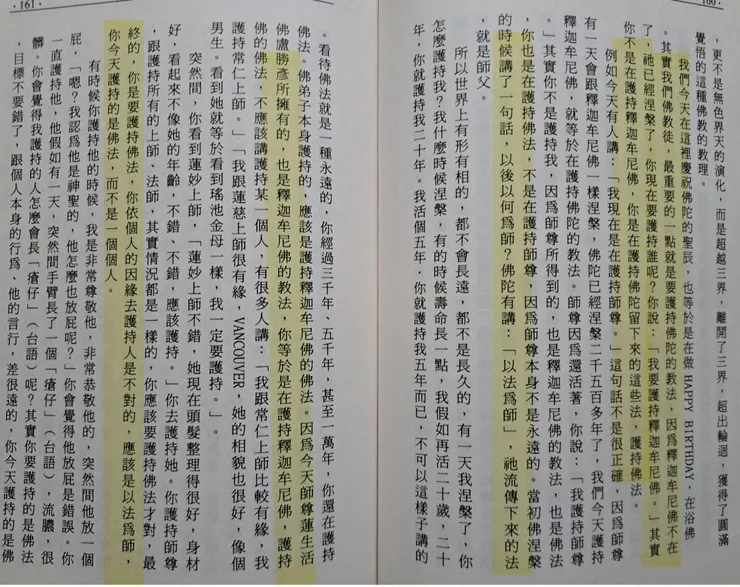 160
，更不是無色界天的演化，而是超越三界，離開了三界，超出輪迴，獲得了圓滿
覺悟的這種佛教的教理。
我們今天在這裡慶祝佛陀的聖辰，也等於是在做 HAPPY BIRTHDAY，在浴佛
。其實我們佛教徒，最重要的一點就是要護持佛陀的教法，因爲釋迦牟尼佛不在
了，祂已經涅槃了，你現在要護持誰呢？你說：「我要護持釋迦牟尼佛。」其實
你不是在護持釋迦牟尼佛，你是在護持佛陀留下來的這些法，護持佛法。
例如今天有人講：「我現在是在護持師尊。」這句話不是很正確，因爲師尊
有一天會跟釋迦牟尼佛一樣涅槃，佛陀已經涅槃二千五百多年了，我們今天護持
釋迦牟尼佛，就等於在護持佛陀的教法。師尊因爲還活著，你說：「我護持師尊
。」其實你不是護持我，因爲師尊所得到的，也是釋迦牟尼佛的教法，也是佛法
，你也是在護持佛法，不是在護持師尊，因爲師尊本身不是永遠的。當初佛涅槃
的時候講了一句話，以後以何爲師？佛陀有講：「以法爲師」，祂流傳下來的法
，就是師父。
所以世界上有形有相的，都不會長遠，都不是長久的，有一天我涅槃了，你
怎麼護持我？我什麼時候涅槃，有的時候壽命長一點，我假如再活二十歲，二十
年，你就護持我二十年。我活個五年，你就護持我五年而已，不可以這樣子講的
161
。看待佛法就是一種永遠的，你經過三千年、五千年，甚至一萬年，你還在護持
佛法。佛弟子本身護持的，應該是護持釋迦牟尼佛的佛法。因爲今天師尊蓮生活
佛盧勝彥所擁有的，也是釋迦牟尼佛的教法，你等於是在護持釋迦牟尼佛，護持
佛的佛法，不應該講護持某一個人，有很多人講：「我跟常仁上師比較有緣，我
護持常仁上師。」「我跟蓮慈上師很有緣，VANCOUVER，她的相貌也很好，像個
男生。看到她就等於看到瑤池金母一樣，我一定要護持。」
突然間，你看到蓮妙上師，「蓮妙上師不錯，她現在頭髮整理得很好，身材
好，看起來不像她的年齡，不錯、不錯，應該護持。」你去護持她。你護持師尊
，跟護持所有的上師、法師，其實情況都是一樣的，你應該要護持佛法才對，最
終的，你是要護持佛法，你依個人的因緣去護持人是不對的，應該是以法爲師，
你今天護持的是佛法，而不是一個個人。
有時候你護持他的時候，我是非常尊敬他，非常恭敬他的，突然間他放一個
屁，「嗯？我認爲他是神聖的，他怎麼也放屁呢？」你會覺得他放屁是錯誤。你
一直護持他，他假如有一天，突然間手臂長了一個「瘡仔」（台語），流膿，很
髒。你會覺得我護持的人怎麼會長「瘡仔」（台語）呢？其實你要護持的是佛法
，目標不要錯了，跟個人本身的行爲、他的言行，差很遠的，你今天護持的是佛